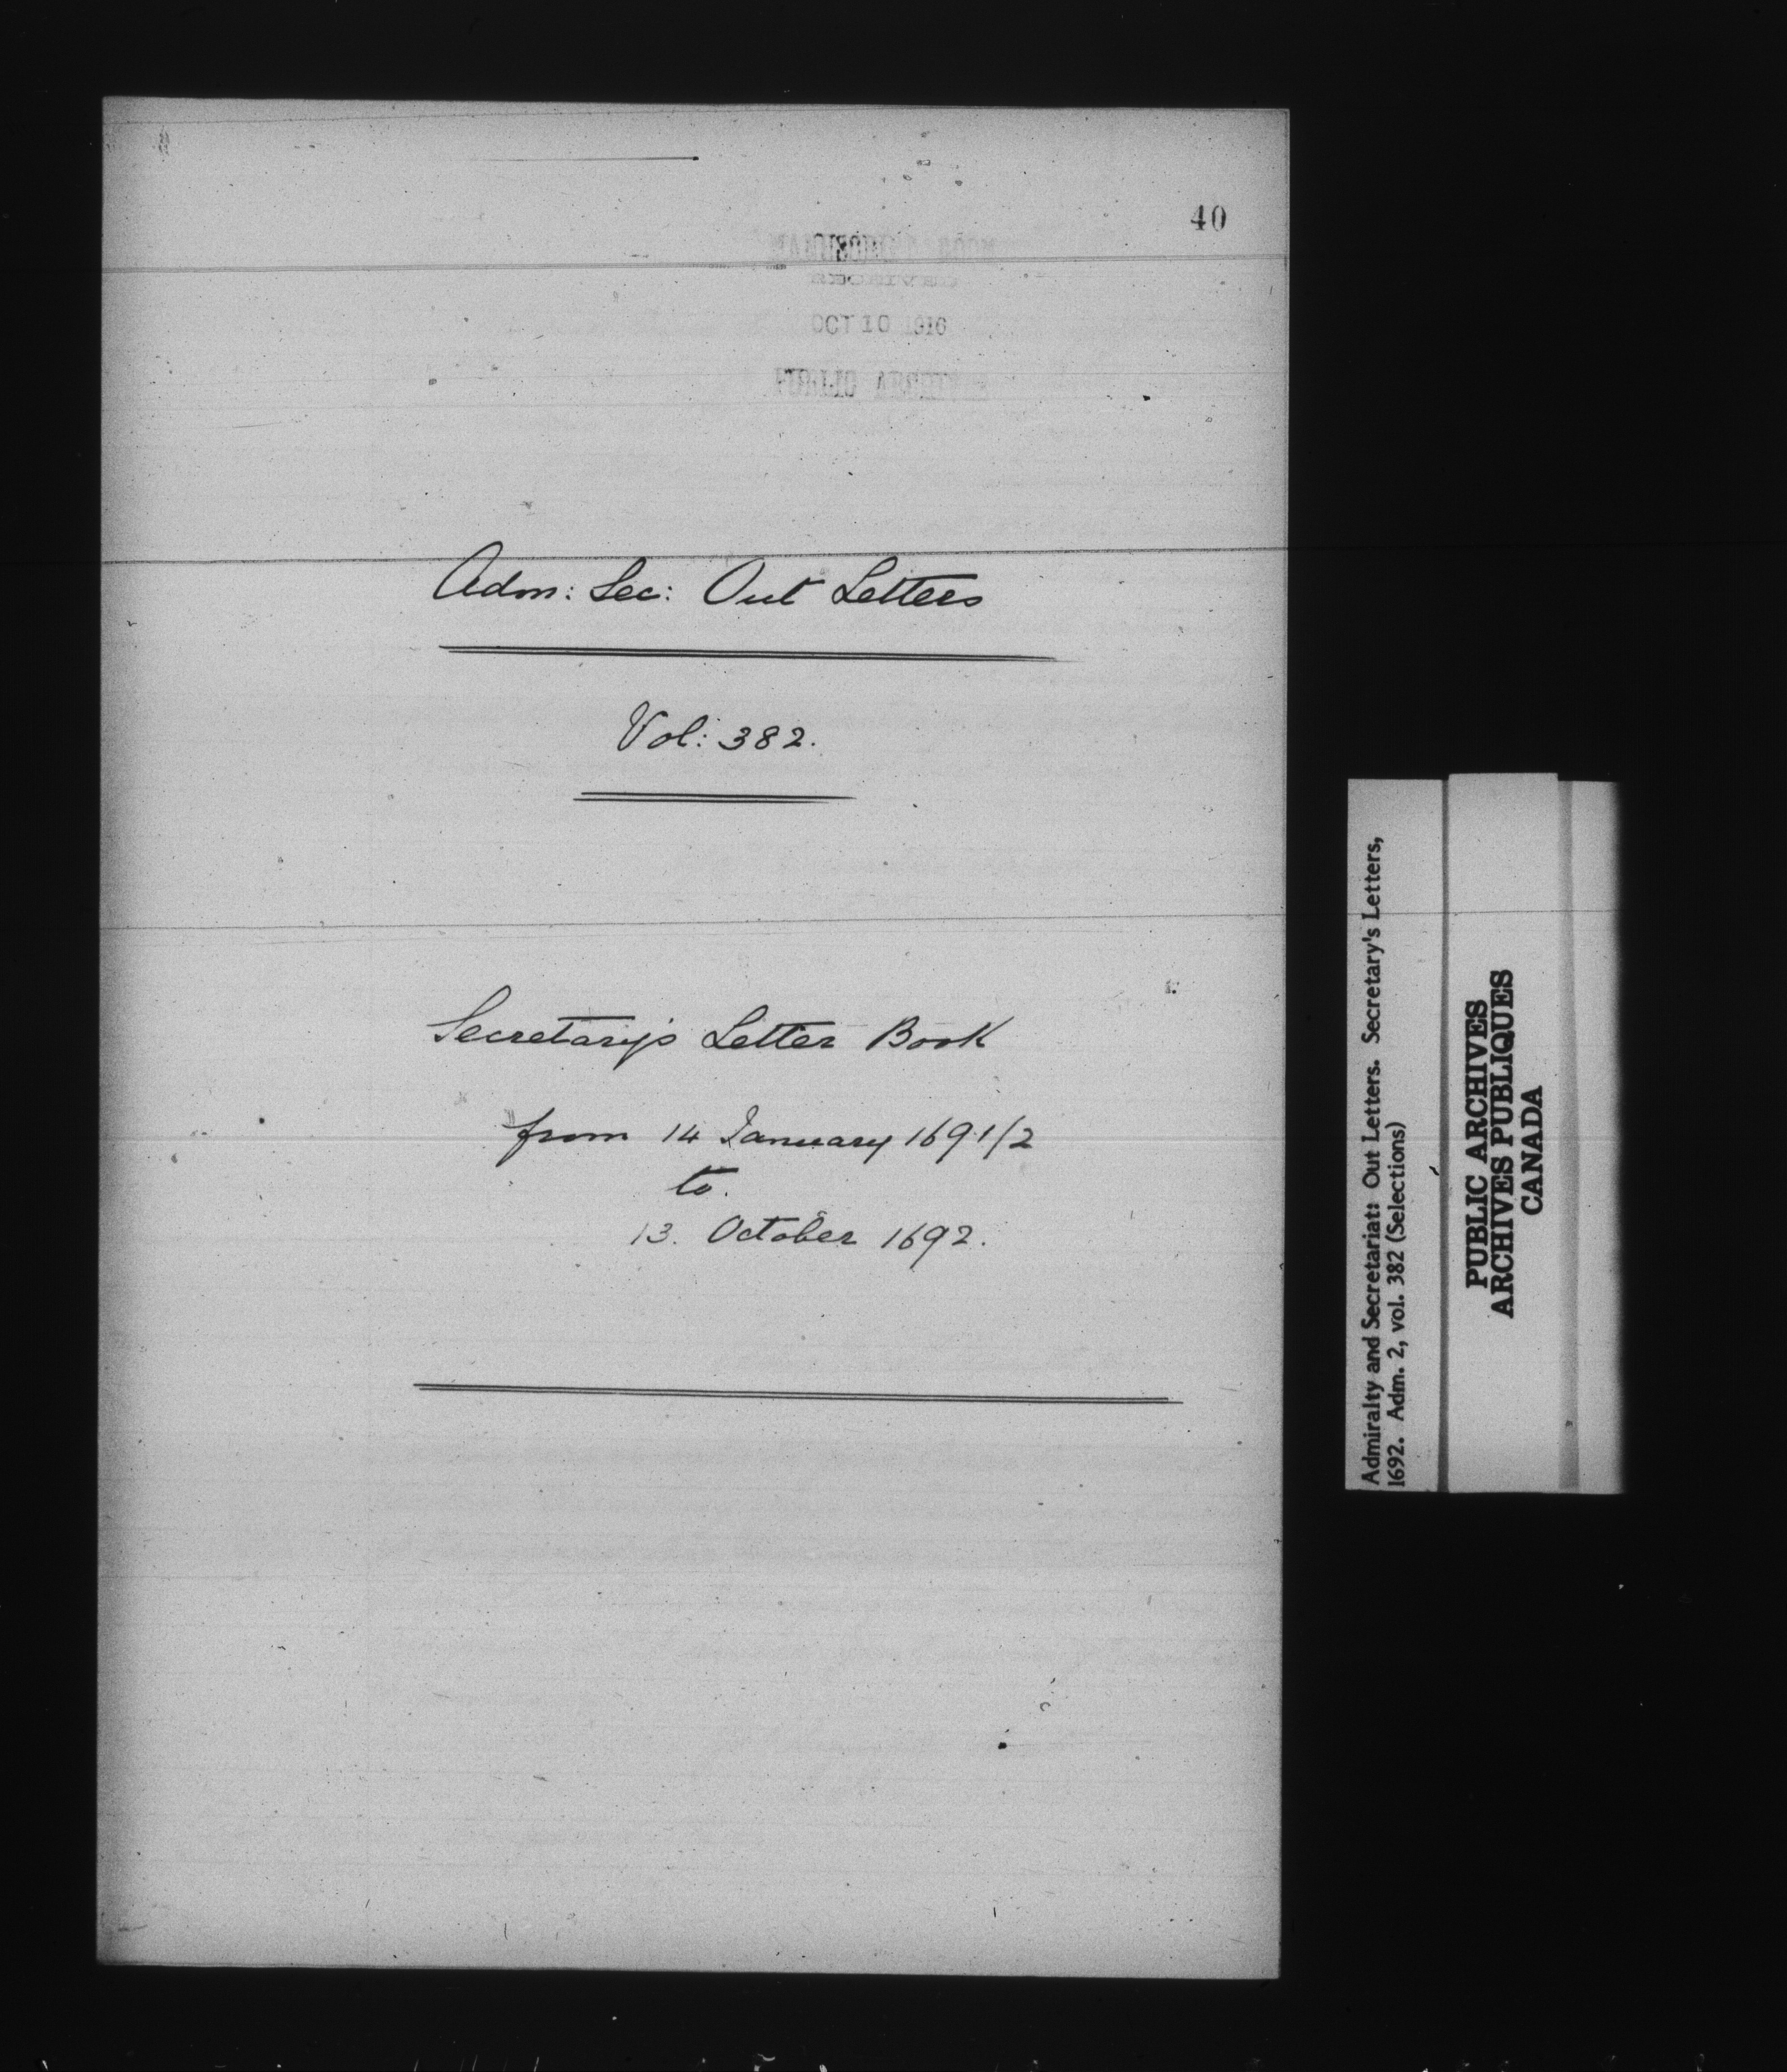 40
OCT 10 1916
Adm: Sec: Out Letters
Vol: 382.
Secretary's Letter Book
from 14 January 1691/2
to.
13. October 1692.
Admiralty and Secretariat: Out Letters. Secretary's Letters,
1692. Adm. 2, vol. 382 (Selections)
PUBLIC ARCHIVES
ARCHIVES PUBLIQUES
CANADA